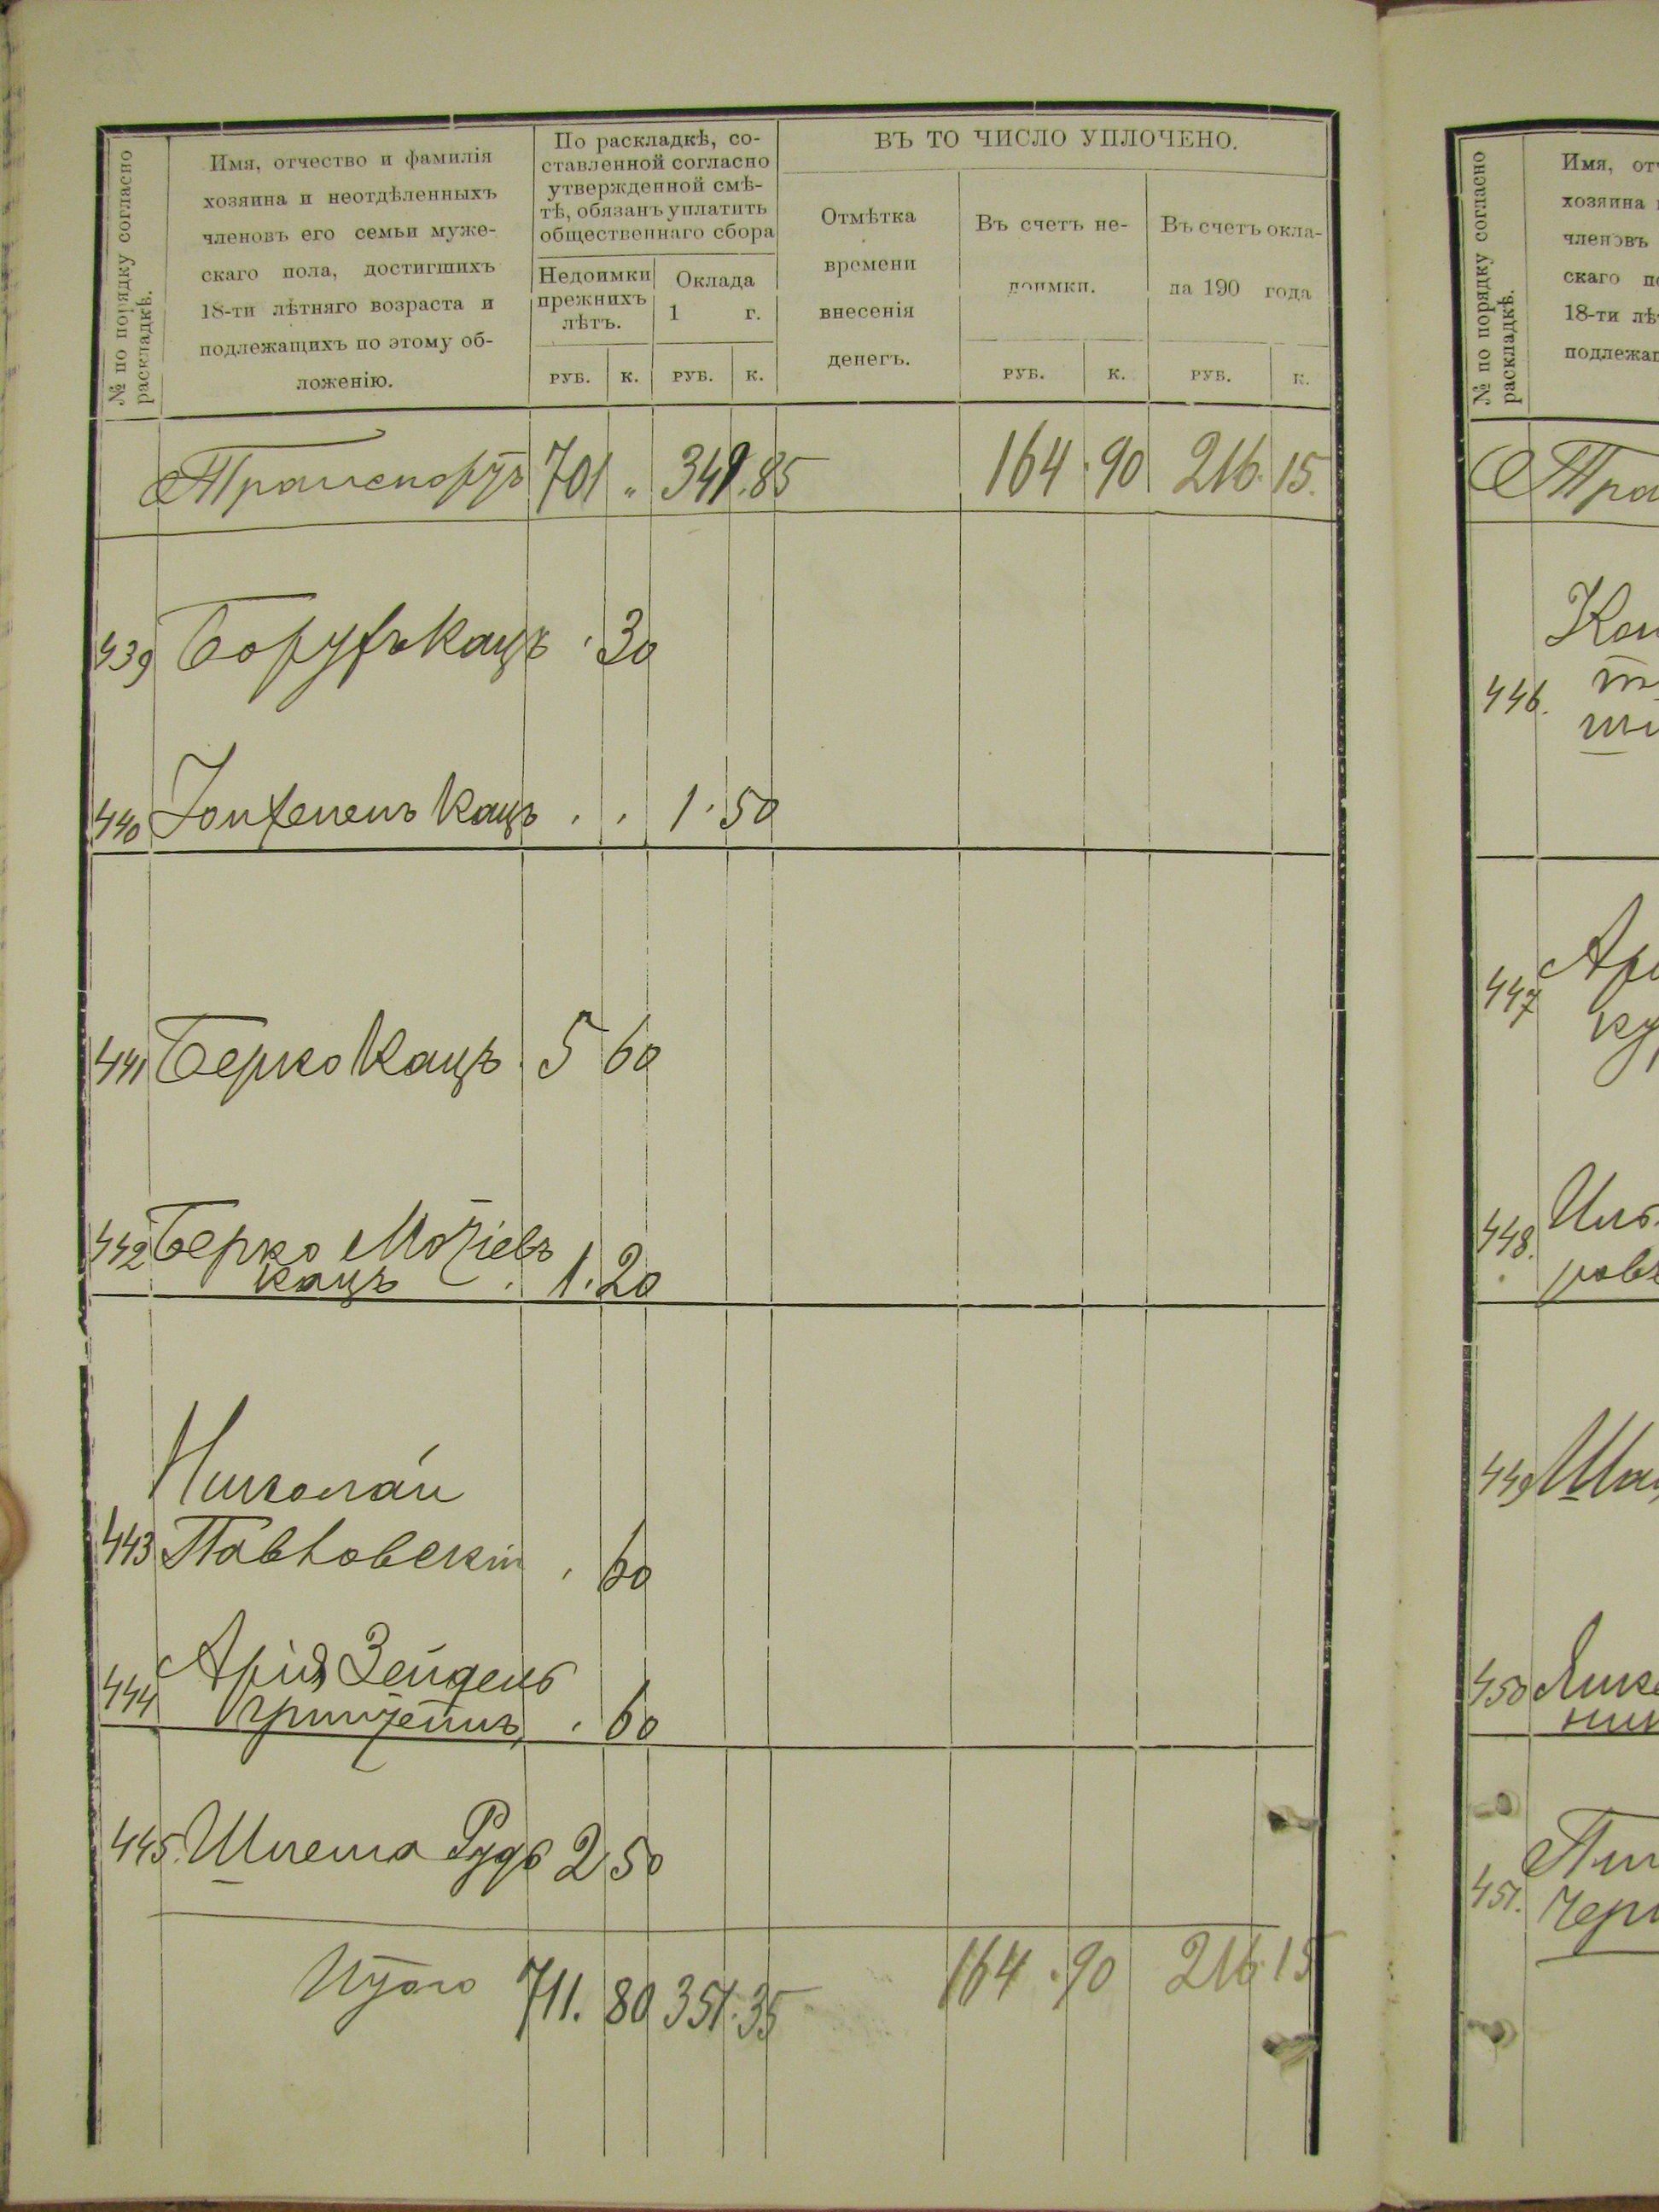 № по порядку согласно
раскладкѣ.
Имя, отчество и фамилія
хозяина и неотдѣленныхъ
членовъ его семьи муже-
скаго пола, достигшихъ
18-ти лѣтняго возраста и
подлежащихъ по этому об-
ложенію.
По раскладкѣ, со-
ставленной согласно
утвержденной смѣ-
тѣ, обязанъ уплатить
общественнаго сбора
Недоимки
прежнихъ
лѣтъ.
Оклада
1 г.
РУБ. К. РУБ. К.
ВЪ ТО ЧИСЛО УПЛОЧЕНО.
Отмѣтка
времени
внесенія
денегъ.
Въ счетъ не-
доимки.
РУБ. К.
Въ счетъ окла-
да 190 года
РУБ. К.
Транспортъ 701 „ 349.85 164.90 216.15.
439 Борухъ Кацъ . 30
440 Кацъ . . 1.50
441 Берко Кацъ . 5 60
442 Берко
Кацъ . 1.20
Николай
443 Павловскій . 60
444 Арія Зейдель
. 60
445. Шлема Рудь 2 50
Итого 711. 80 351.35 164.90 216.15
№ по порядку согласно
раскладкѣ.
Имя, от
хозяина
членовъ
скаго п
18-ти лѣ
подлежа
Тра
446.
447
448.
449 Ша
450
451. Чер